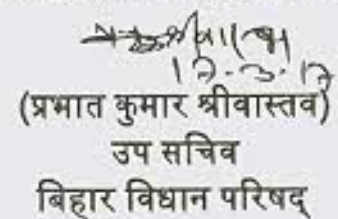 12.3.12
(प्रभात कुमार श्रीवास्तव)
उप सचिव
बिहार विधान परिषद्